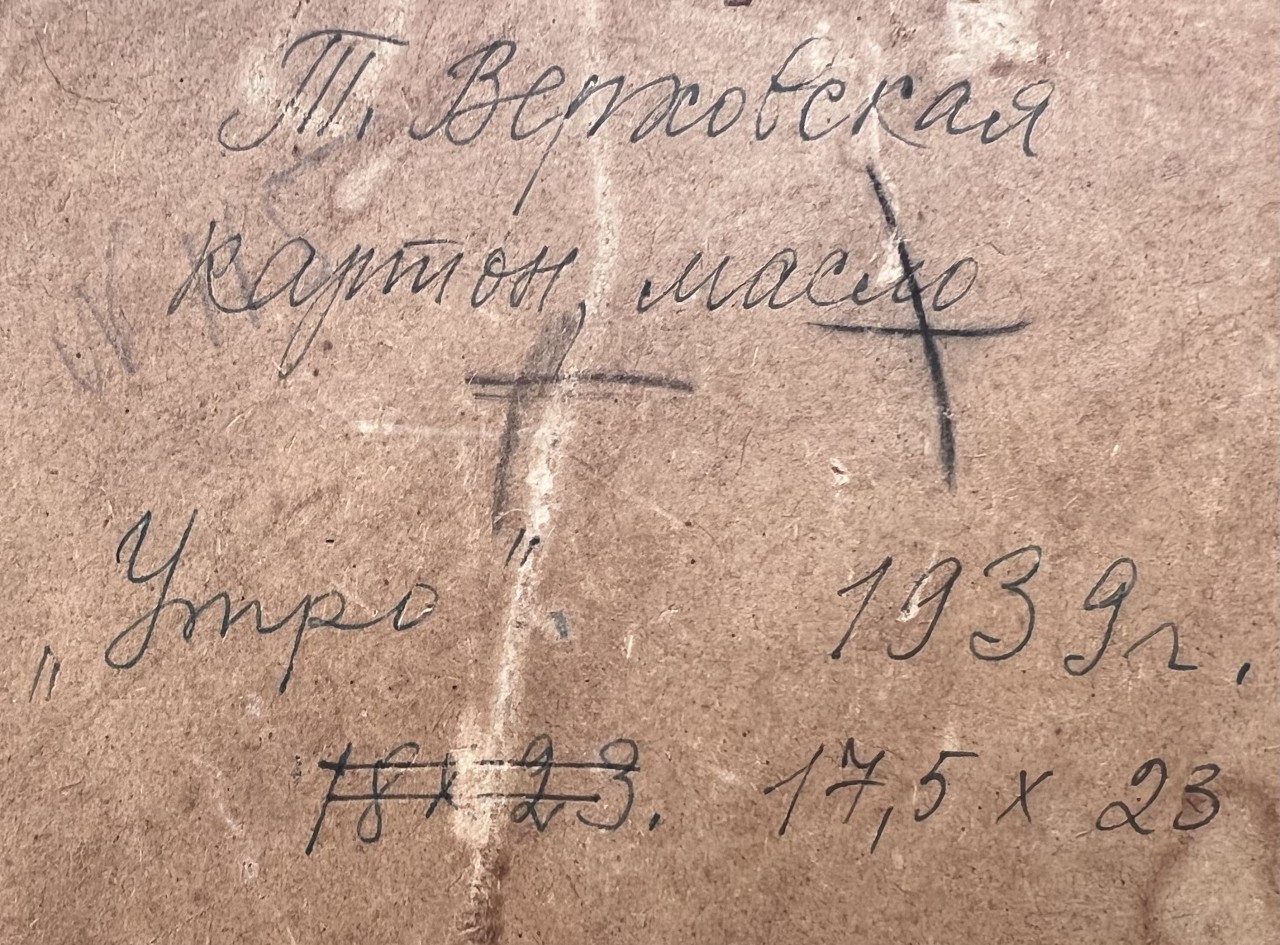 Т. Верховская
картон, масло
„Утро" 1939 г.
18 х 23. 17,5 х 23